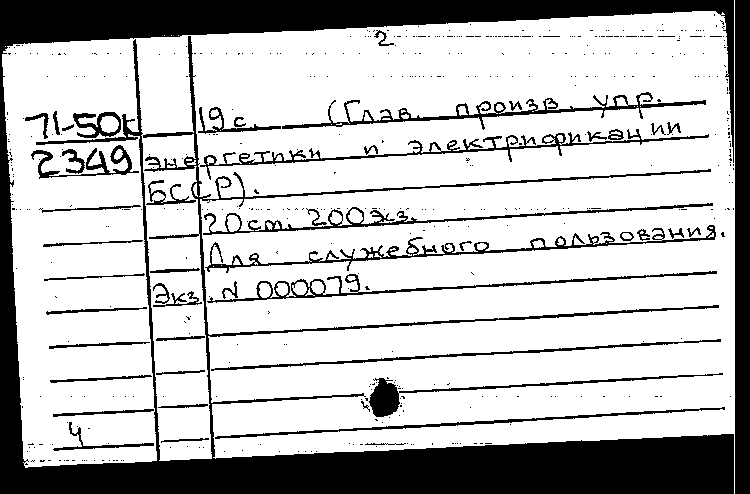 2
71-50к 19с. (Глав. произв. упр.
2349 энергетики и электрификации
БССР).
20см. 200экз.
Для служебного пользования.
Экз. N 000079.
4